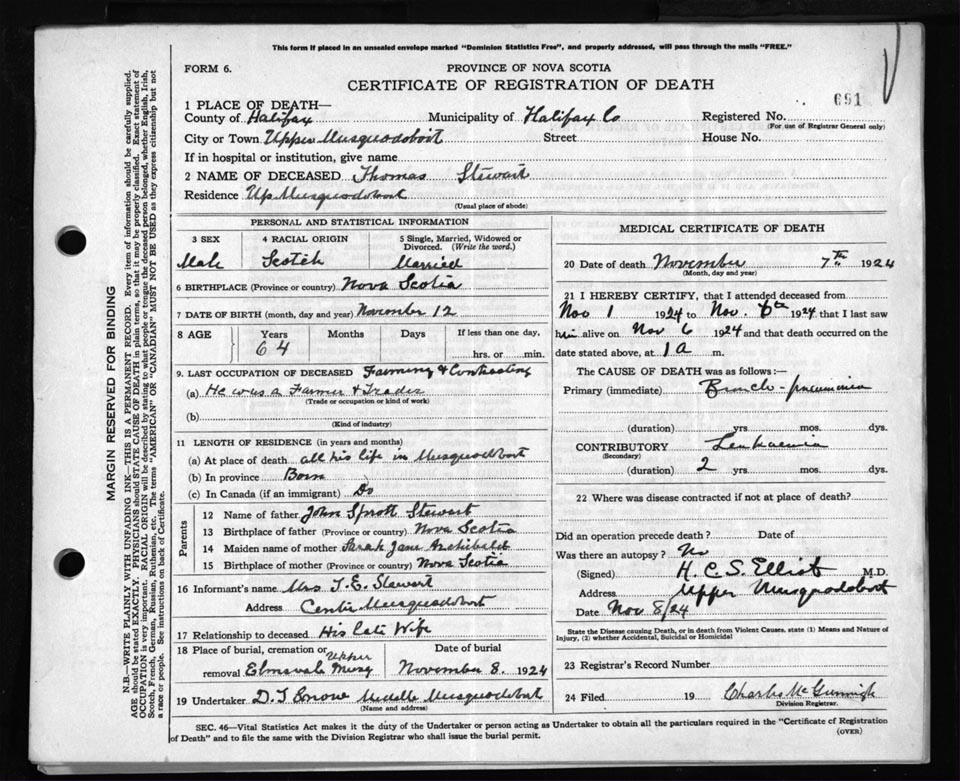 This form if placed in an unsealed envelope marked "Dominion Statistics Free", and properly addressed, will pass through the mails "FREE."
FORM 6.
PROVINCE OF NOVA SCOTIA
CERTIFICATE OF REGISTRATION OF DEATH
691
1 PLACE OF DEATH—
County of Halifax Municipality of Halifax Co Registered No.
(For use of Registrar General only)
City or Town Upper Musquodoboit Street House No.
If in hospital or institution, give name
2 NAME OF DECEASED Thomas Stewart
Residence Up Musquodoboit
(Usual place of abode)
PERSONAL AND STATISTICAL INFORMATION
3 SEX 4 RACIAL ORIGIN 5 Single, Married, Widowed or Divorced. (Write the word.)
Male Scotch Married
6 BIRTHPLACE (Province or country) Nova Scotia
7 DATE OF BIRTH (month, day and year) November 12
8 AGE Years Months Days If less than one day,
64 hrs. or min.
9. LAST OCCUPATION OF DECEASED Farming & Contracting
(a) He was a Farmer & Trader
(Trade or occupation or kind of work)
(b)
(Kind of industry)
11 LENGTH OF RESIDENCE (in years and months)
(a) At place of death all his life in Musquodoboit
(b) In province Born
(c) In Canada (if an immigrant) Do
Parents
12 Name of father John Sprott Stewart
13 Birthplace of father (Province or country) Nova Scotia
14 Maiden name of mother Sarah Jane Archibald
15 Birthplace of mother (Province or country) Nova Scotia
16 Informant's name Mrs T. E. Stewart
Address Centre Musquodoboit
17 Relationship to deceased His late Wife
18 Place of burial, cremation or removal Elmsvale Upper Musq
Date of burial
November 8. 1924
19 Undertaker D. T. Middle Musquodoboit
(Name and address)
MEDICAL CERTIFICATE OF DEATH
20 Date of death November 7th 1924
(Month, day and year)
21 I HEREBY CERTIFY, that I attended deceased from
Nov 1 1924 to Nov. 6th 1924 that I last saw
him alive on Nov 6 1924 and that death occurred on
date stated above, at 1 a m.
The CAUSE OF DEATH was as follows:—
Primary (immediate) Bronch-pneumonia
(duration) yrs. mos. dys.
CONTRIBUTORY Leukaemia
(Secondary)
(duration) 2 yrs. mos. dys.
22 Where was disease contracted if not at place of death?
Did an operation precede death? Date of
Was there an autopsy? No
(Signed) H. C. S. Elliot M.D.
Address Upper Musquodoboit
Date Nov. 8/24
State the Disease causing Death, or in death from Violent Causes, state (1) Means and Nature of
Injury, (2) whether Accidental, Suicidal or Homicidal
23 Registrar's Record Number
24 Filed 19 Charles
Division Registrar.
SEC. 46—Vital Statistics Act makes it the duty of the Undertaker or person acting as Undertaker to obtain all the particulars required in the "Certificate of Registration
of Death" and to file the same with the Division Registrar who shall issue the burial permit.
(OVER)
MARGIN RESERVED FOR BINDING
N.B.—WRITE PLAINLY WITH UNFADING INK—THIS IS A PERMANENT RECORD. Every item of information should be carefully supplied.
AGE should be stated EXACTLY. PHYSICIANS should STATE CAUSE OF DEATH in plain terms, so that it may be properly classified. Exact statement of
OCCUPATION is very important. RACIAL ORIGIN will be described by stating to what people or tongue the deceased person belonged, whether English, Irish,
Scotch, French, German, Russian, Ruthenian, etc. The terms "AMERICAN" or "CANADIAN" MUST NOT BE USED as they express citizenship but not
a race or people. See instructions on back of Certificate.